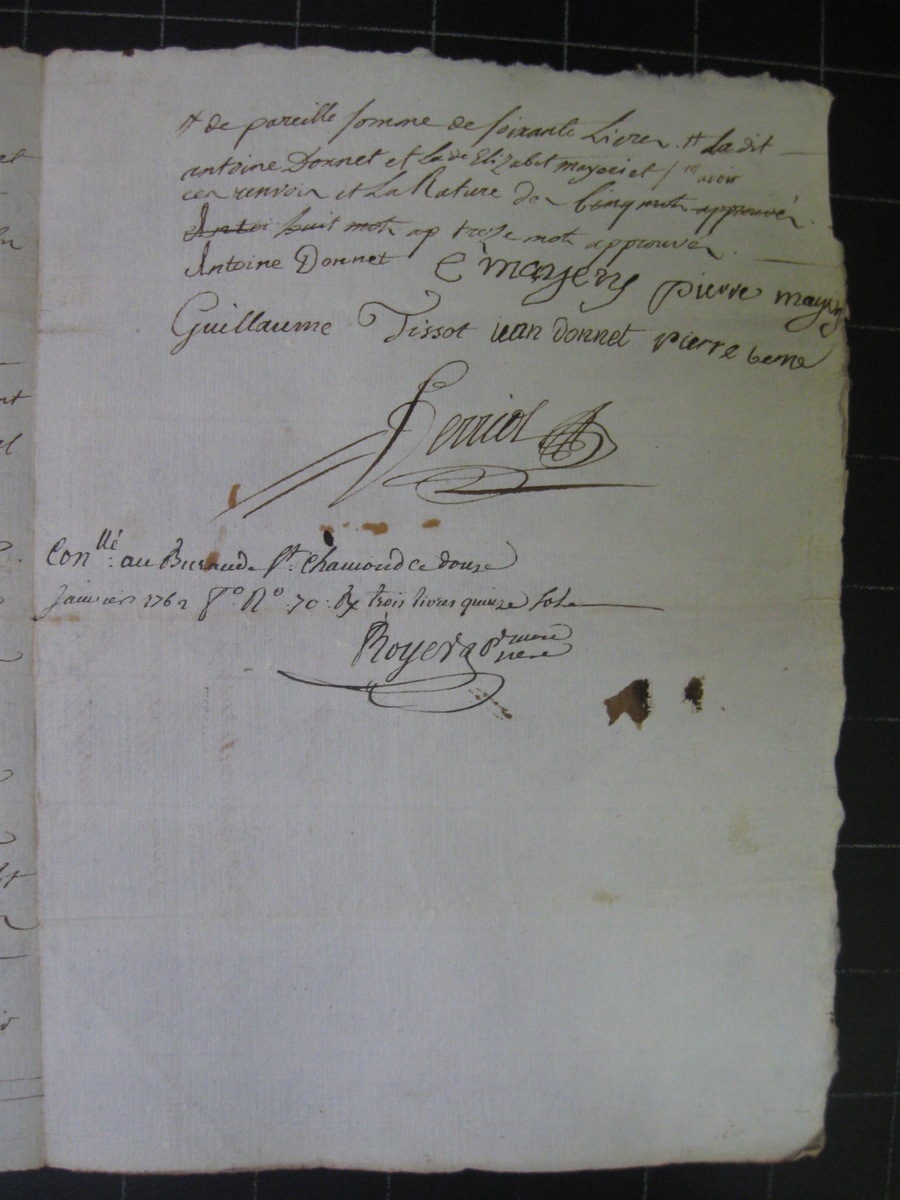 # de pareille somme de soixante Livres # le dit
antoine Donnet et la de Elizabet mayeri et
ces renvoir et La Rature de cinq mots approuvés
Antoi huit mot ap treze mot approuver
Antoine Donnet E mayery pierre mayery
Guillaume Tissot iean donnet pierre berne
Ferriol
Con.llé au Bureau de St. chamond ce douze
Janvier 1762 F.o R.o 70. Rx trois livres quinze sols
Royer